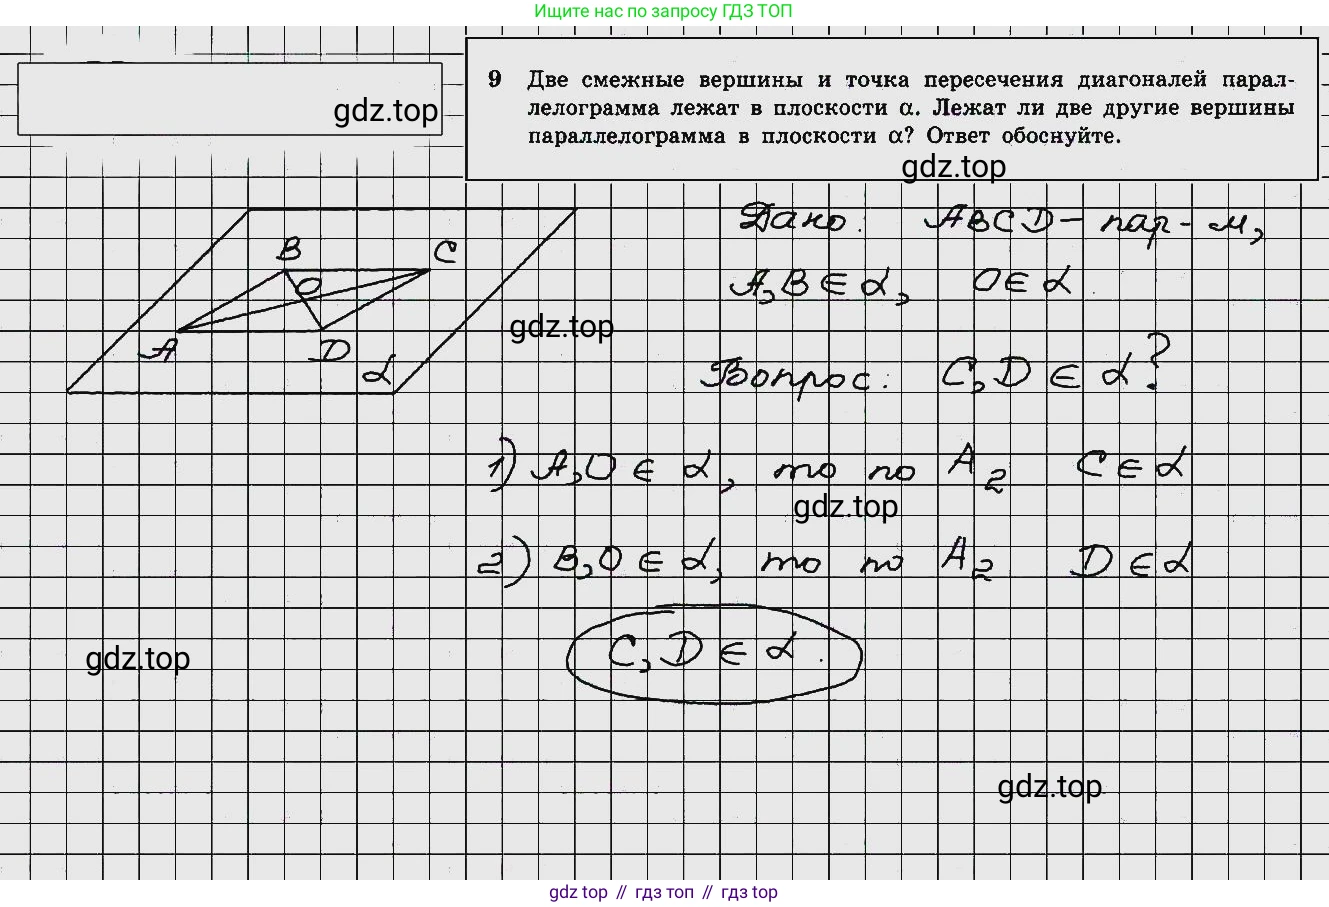 Ищите нас по запросу ГДЗ ТОП
9 Две смежные вершины и точка пересечения диагоналей парал-
лелограмма лежат в плоскости α. Лежат ли две другие вершины
параллелограмма в плоскости α? Ответ обоснуйте.
gdz.top
gdz.top
Дано: ABCD – пар-м,
A,B ∈ α, O ∈ α
B C
O
A D
α
gdz.top
Вопрос: C,D ∈ α?
1) A,O ∈ α, то по A₂ C ∈ α
gdz.top
2) B,O ∈ α, то по A₂ D ∈ α
C,D ∈ α.
gdz.top
gdz.top
gdz top // гдз топ // gdz top